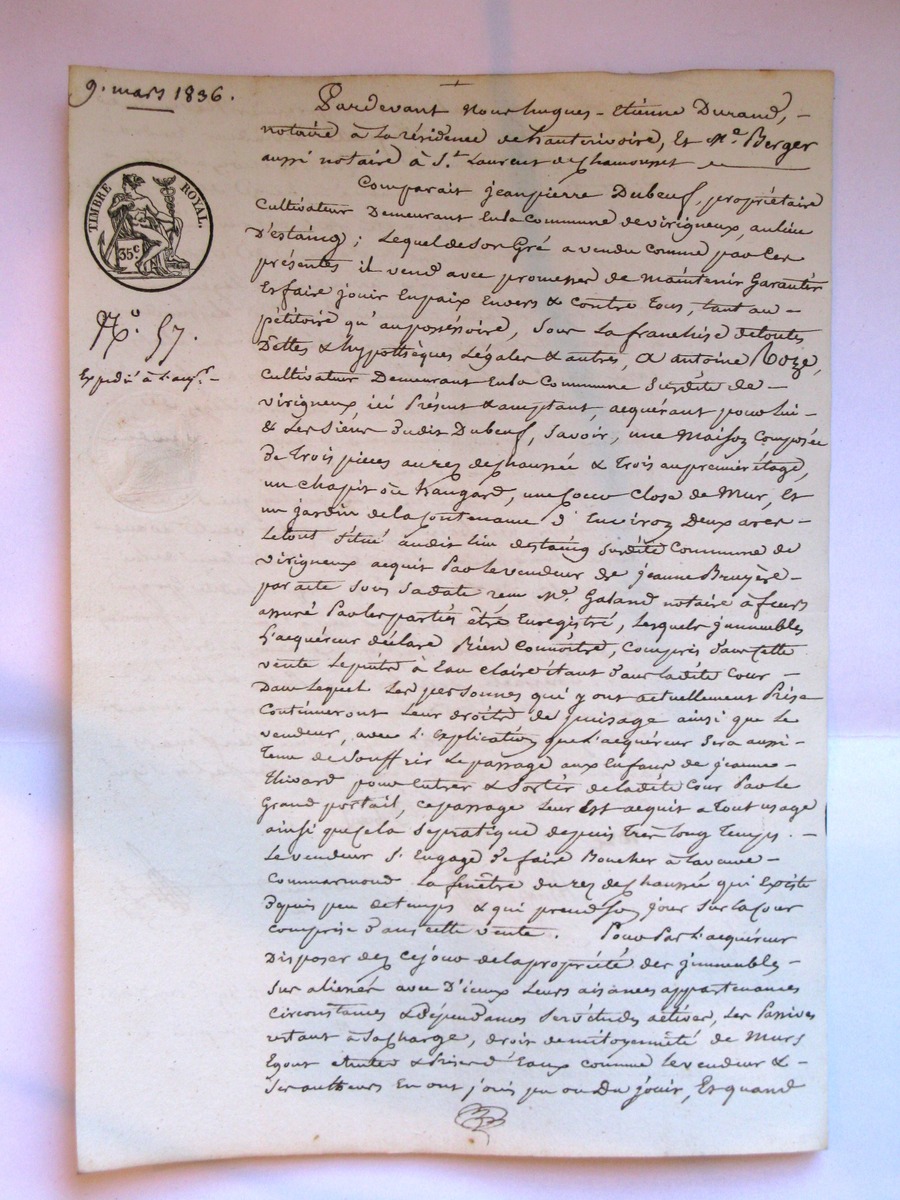 9. mars 1836.
TIMBRE ROYAL.
35c
No. 57.
Expédié à l'aqr.
Pardevant Nous hugues-Etienne Durand,
notaire à La résidence de hauterivoire, Et Me. Berger
aussi notaire à St. Laurent de Chamousset
Comparait jeanpierre Dubeuf, propriétaire
Cultivateur Demeurant En la Commune de virigneux, au lieu
D'estaing; Lequel de son Gré a vendu comme par Ces
présentes il vend avec promesse de maintenir Garantir
Et faire jouir En paix Envers & Contre tous, tant au
pétitoire qu'au possessoire, sous La franchise de toutes
Dettes & hypothèques Légales & autres, a antoine Roze,
Cultivateur Demeurant En la Commune Susdite de
virigneux, ici Présent & acceptant, acquérant pour lui
& Les Siens dudit Dubeuf, Savoir, une Maison Composée
De trois pieces au rez de chaussée & trois au premier étage,
un chapit ou hangard, une Cour Close de Mur, Et
un jardin de la Contenance d'Environ Deux ares
Le tout Situé audit lieu destaing susdite Commune de
virigneux acquis Par le vendeur de jeanne Bruyère
par acte sous sa date reçu Me. Galand notaire à feurs
assuré Par les parties être Enregistré, Lesquels jmmeubles
L'acquéreur déclare Bien Connoître, Compris dans cette
vente Le puits à Eau claire étant dans ladite Cour
Dans Lequel Les personnes qui y ont actuellement Prise
Continueront Leur droits de puisage ainsi que Le
vendeur, avec L'Explication que L'acquéreur Sera aussi
Tenu de Souffrir Le passage aux Enfans de jeanne
thivard pour Entrer & Sortir de ladite Cour Par Le
Grand portail, ce passage Leur Est acquis a Tout usage
ainsi que Cela se pratique depuis Très Long Temps.
Le vendeur S'Engage De faire Boucher à la veuve
Commarmond La fenêtre du rez de chaussée qui Existe
Depuis peu de temps & qui prend Son jour sur la Cour
Comprise Dans cette vente. Pour Par L'acquéreur
Disposer dez Ce jour de la propriété des jmmeubles
Sus aliénés avec D'iceux Leurs aisances appartenances
Circonstances & Dépendances Servitudes actives, Les Passives
restant à Sa Charge, droit de mitoyenneté de Murs
Egout & Prise d'Eaux comme Le vendeur &
Ses auteurs En ont joui pu ou Du jouir, Et quand